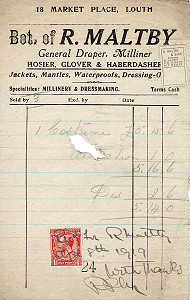 18 MARKET PLACE, LOUTH
Bot. of R. MALTBY
General Draper, Milliner
HOSIER, GLOVER & HABERDASHER
Jackets, Mantles, Waterproofs, Dressing-G
Specialities: MILLINERY & DRESSMAKING. Terms Cash
Sold by 3 Exd. by Date
1 Costume 5 15 6
5 16 6
Dis 2 6
5 4 0
for R Maltby
8th 1919
24 With thanks